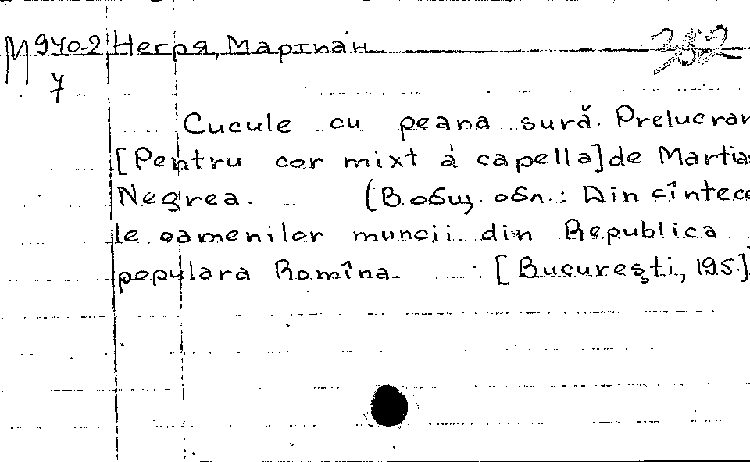 М 940-2 Негря, Марциан 252
7
Cucule cu peana sură. Prelucrar
[Pentru cor mixt a capella] de Martia
Negrea. (В общ. обл.: Din cîntece
le oamenilor muncii din Republica
populara Romîna. [București, 195.]